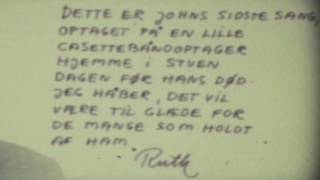 DETTE ER JOHNS SIDSTE SANG,
OPTAGET PÅ EN LILLE
CASETTEBÅNDOPTAGER
HJEMME I STUEN
DAGEN FØR HANS DØD.
JEG HÅBER, DET VIL
VÆRE TIL GLÆDE FOR
DE MANGE SOM HOLDT
AF HAM
Ruth